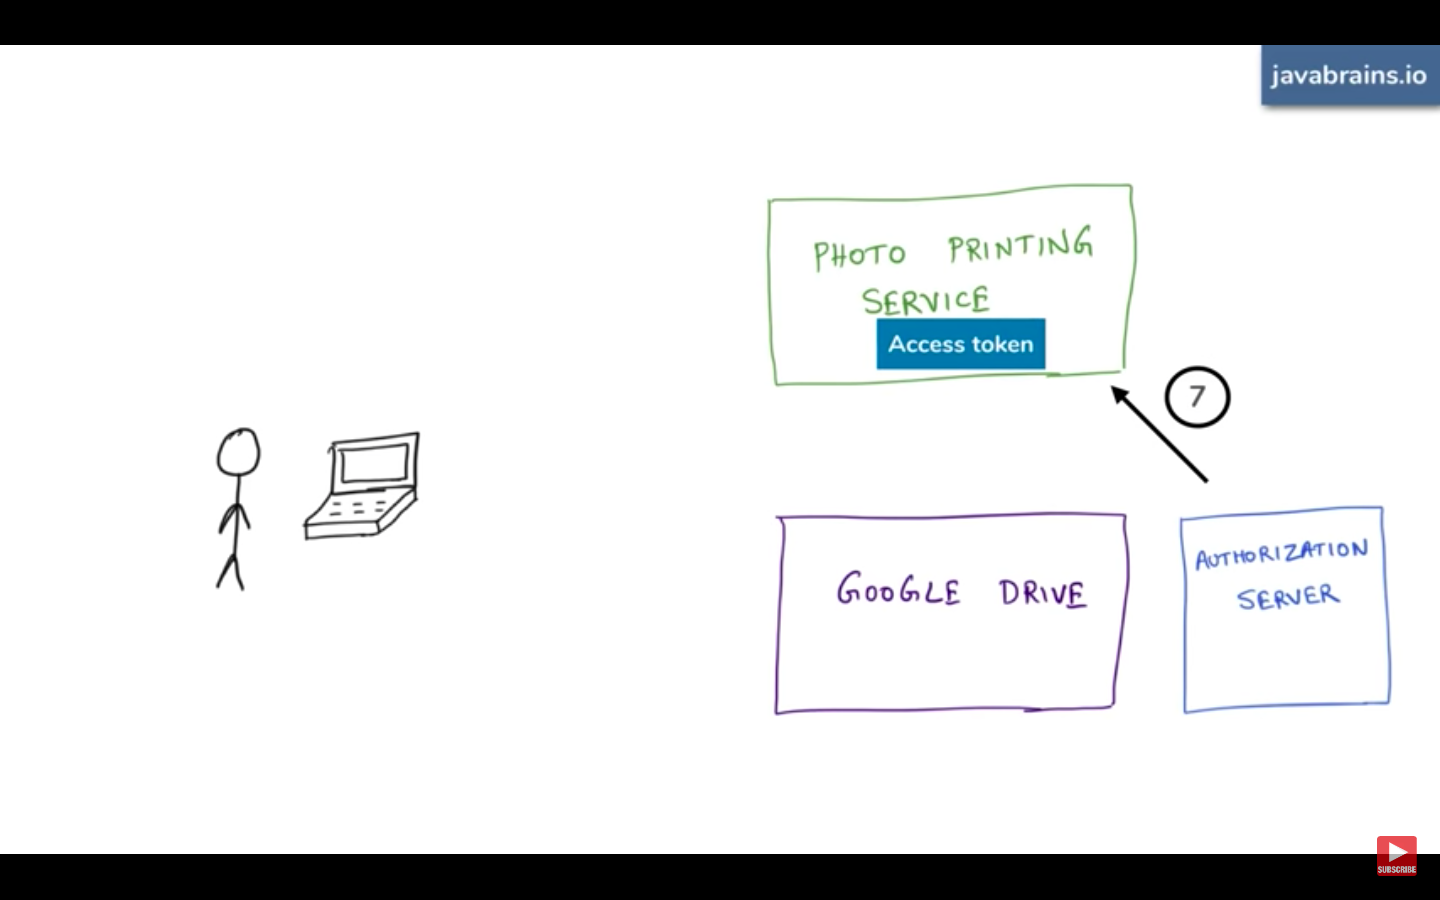 javabrains.io
PHOTO PRINTING
SERVICE
Access token
7
GOOGLE DRIVE
AUTHORIZATION
SERVER
SUBSCRIBE